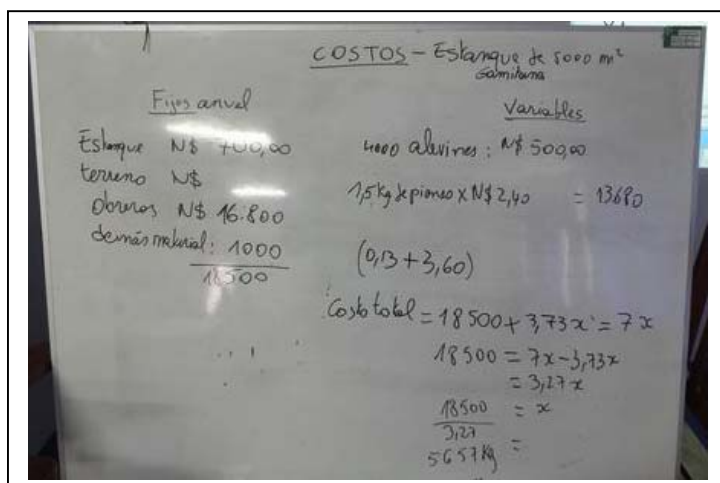 COSTOS – Estanque de 5000 m²
Gamitana
Fijos anual
Estanque N$ 700,00
terreno N$
obreros N$ 16.800
demás material: 1000
18500
Variables
4000 alevines: N$ 500,00
1,5 kg de pienso x N$ 2,40 = 13680
(0,13 + 3,60)
Costo total = 18500 + 3,73 x = 7 x
18500 = 7x – 3,73x
= 3,27 x
18500 = x
3,27
5657 Kg =